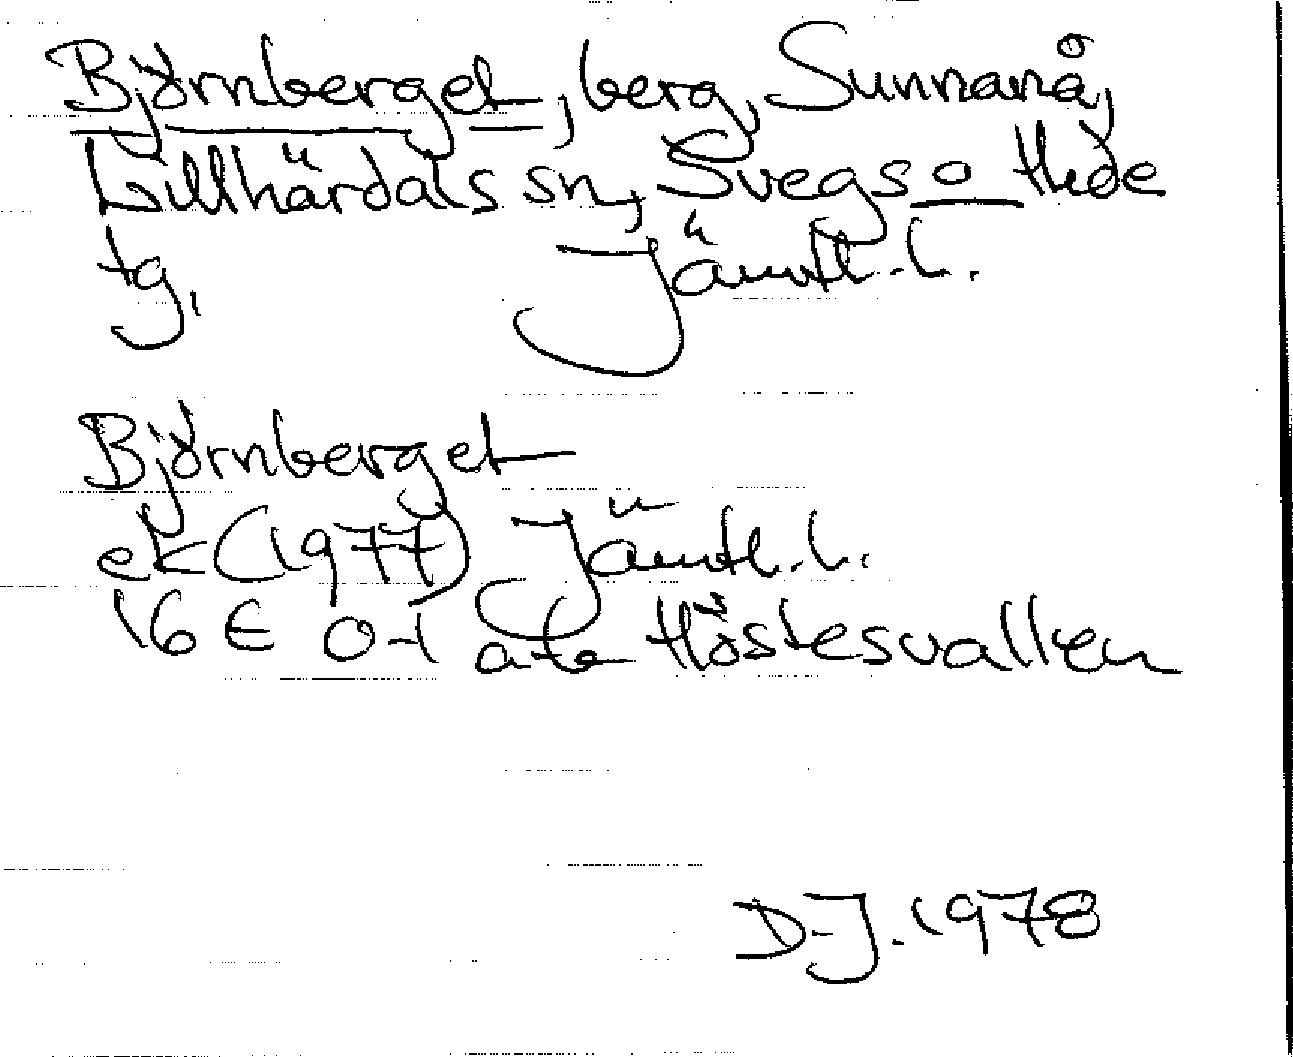 Björnberget, berg, Sunnanå,
Lillhärdals sn, Svegs o Hede
tg, Jämtl. l.
Björnberget
ek (1977) Jämtl. l.
16 E 0-1 a-b Höstesvallen
D-J. 1978